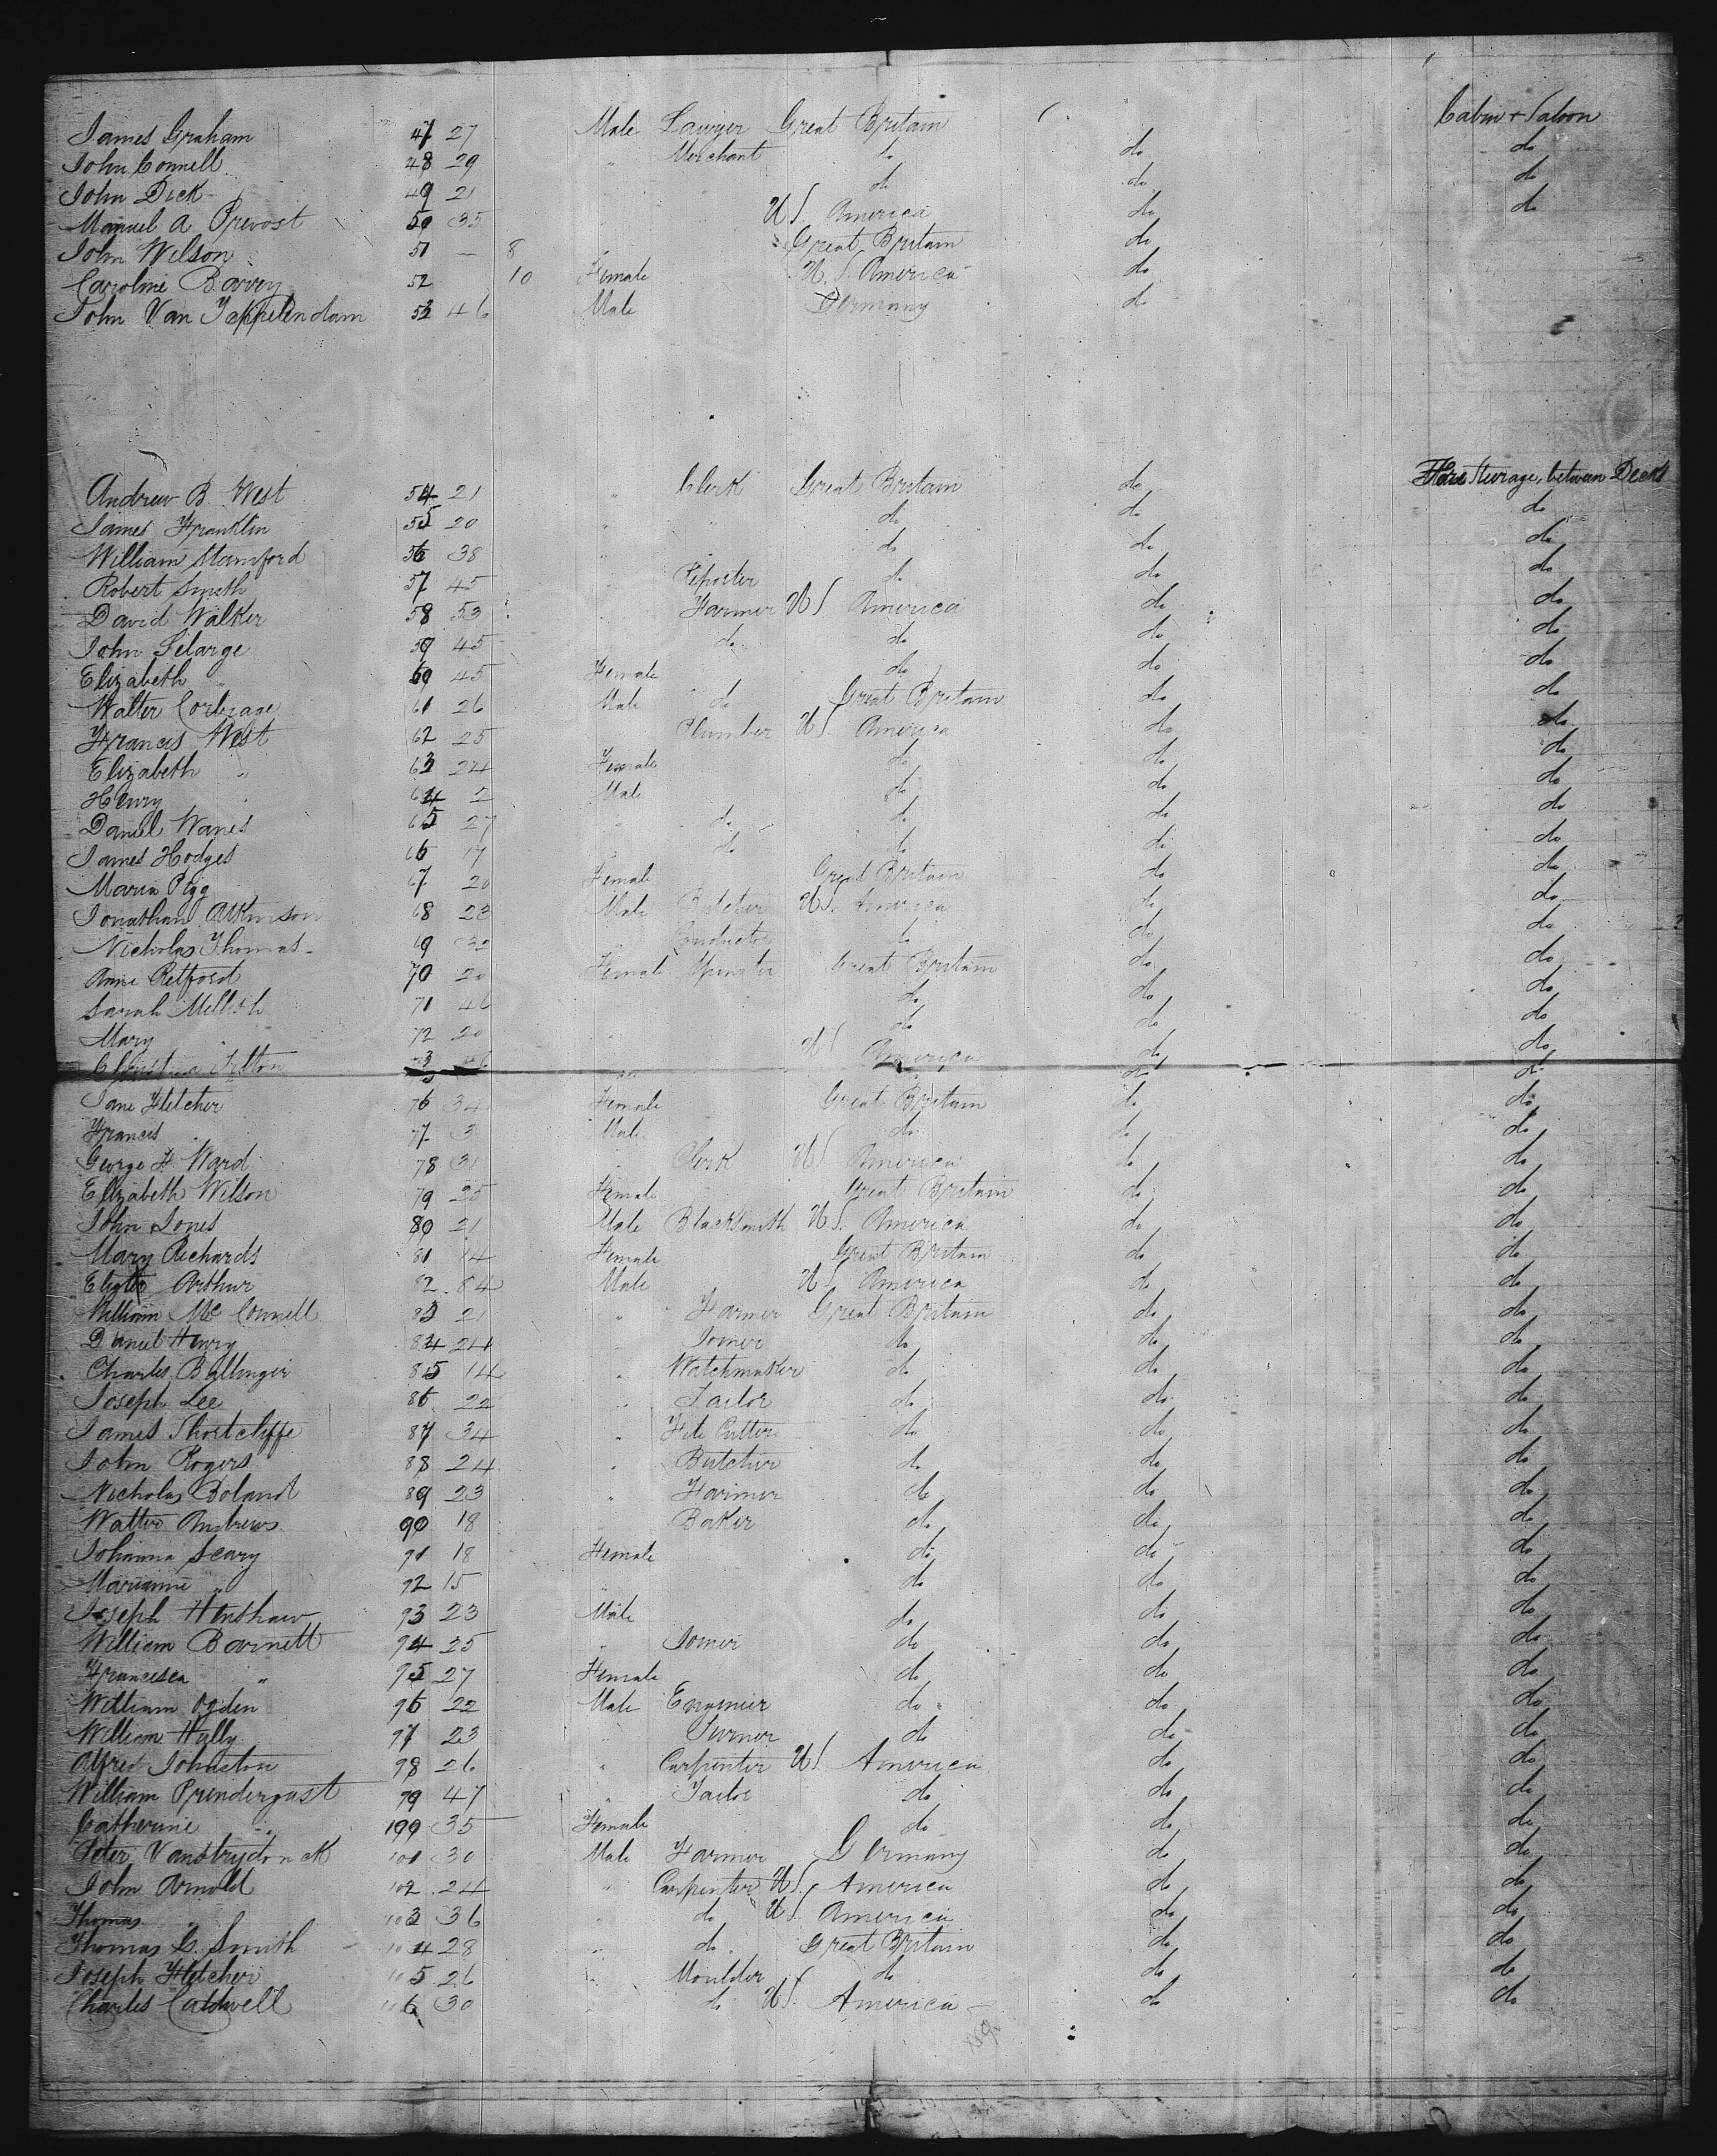 James Graham 47 27 Male Lawyer Great Britain Cabin + Saloon
John Connell 48 29 " Merchant do do do
John Dick 49 21 " " do do do
Manuel A Prevost 50 35 U S. America do do
John Wilson 51 — 8 Great Britain do
Caroline Barrey 52 10 Female U. S. America do
John Van Tappelendam 53 46 Male Germany do
Andrew B West 54 21 " Clerk Great Britain do Steerage, between Decks
James Franklin 55 20 " " do do do
William Stamford 56 38 " " do do do
Robert Smith 57 45 Reporter do do do
David Walker 58 53 Farmer U S America do do
John Selarge 59 45 do do do do
Elizabeth " 60 45 Female do do do
Walter Corbrage 61 26 Male do Great Britain do do
Francis West 62 25 Plumber U S. America do do
Elizabeth " 63 24 Female do do do
Henry " 64 2 Male do do do
Daniel Wanes 65 27 do do do do
James Hodges 66 17 do do do do
Maria Pegg 67 20 Female Great Britain do do
Jonathan Atkinson 68 28 Male Butcher U S. America do do
Nicholas Thomas 69 32 " Conductor do do do
Anne Retford 70 20 Female Spinster Great Britain do do
Sarah Mellish 71 46 do do do
Mary " 72 20 " do do do
Christina Tilton 73 U S America do do
do do
Jane Fletcher 76 34 Female Great Britain do do
Francis " 77 3 Male do do do
George H Ward 78 31 " Clerk U S. America do do
Elizabeth Wilson 79 25 Female Great Britain do do
John Jones 80 21 Male Blacksmith U S. America do do
Mary Richards 81 14 Female Great Britain do do
Arthur 82 84 Male U S. America do do
William Mc Connell 83 21 " Farmer Great Britain do do
Daniel Henry 84 24 Joiner do do do
Charles Ballinger 85 14 " Watchmaker do do do
Joseph Lee 86 22 " Tailor do do do
James Shortcliffe 87 34 " File Cutter do do do
John Rogers 88 24 " Butcher do do do
Nicholas Boland 89 23 " Farmer do do do
Walter Andrews 90 18 " Baker do do do
Johanna Seary 91 18 Female do do do
Marianne " 92 15 " do do do
Joseph Henshaw 93 23 Male do do do
William Barnett 94 25 " Joiner do do do
Francesca " 95 27 Female do do do
William Ogden 96 22 Male Engineer do do do
William Hully 97 23 " Turner do do do
Alfred Johnston 98 26 " Carpenter U S. America do do
William Prendergast 99 47 " Tailor do do do
Catherine " 100 35 Female do do do
Peter Vanstrydonck 101 30 Male Farmer Germany do do
John Arnold 102 24 " Carpenter U S. America do do
Thomas " 103 36 " do U S. America do do
Thomas G. Smith 104 28 " do Great Britain do do
Joseph Fletcher 105 26 " Moulder do do do
Charles Caldwell 106 30 " do U S. America do do